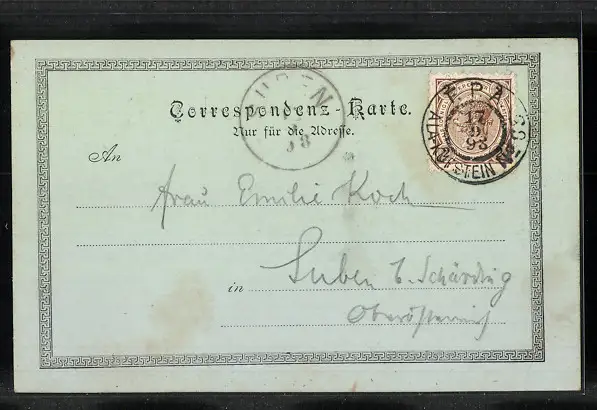 Correspondenz-Karte.
Nur für die Adresse.
An
Frau Emilie Koch
in Suben b. Schärding
Oberösterreich
SUBEN
98
17
93